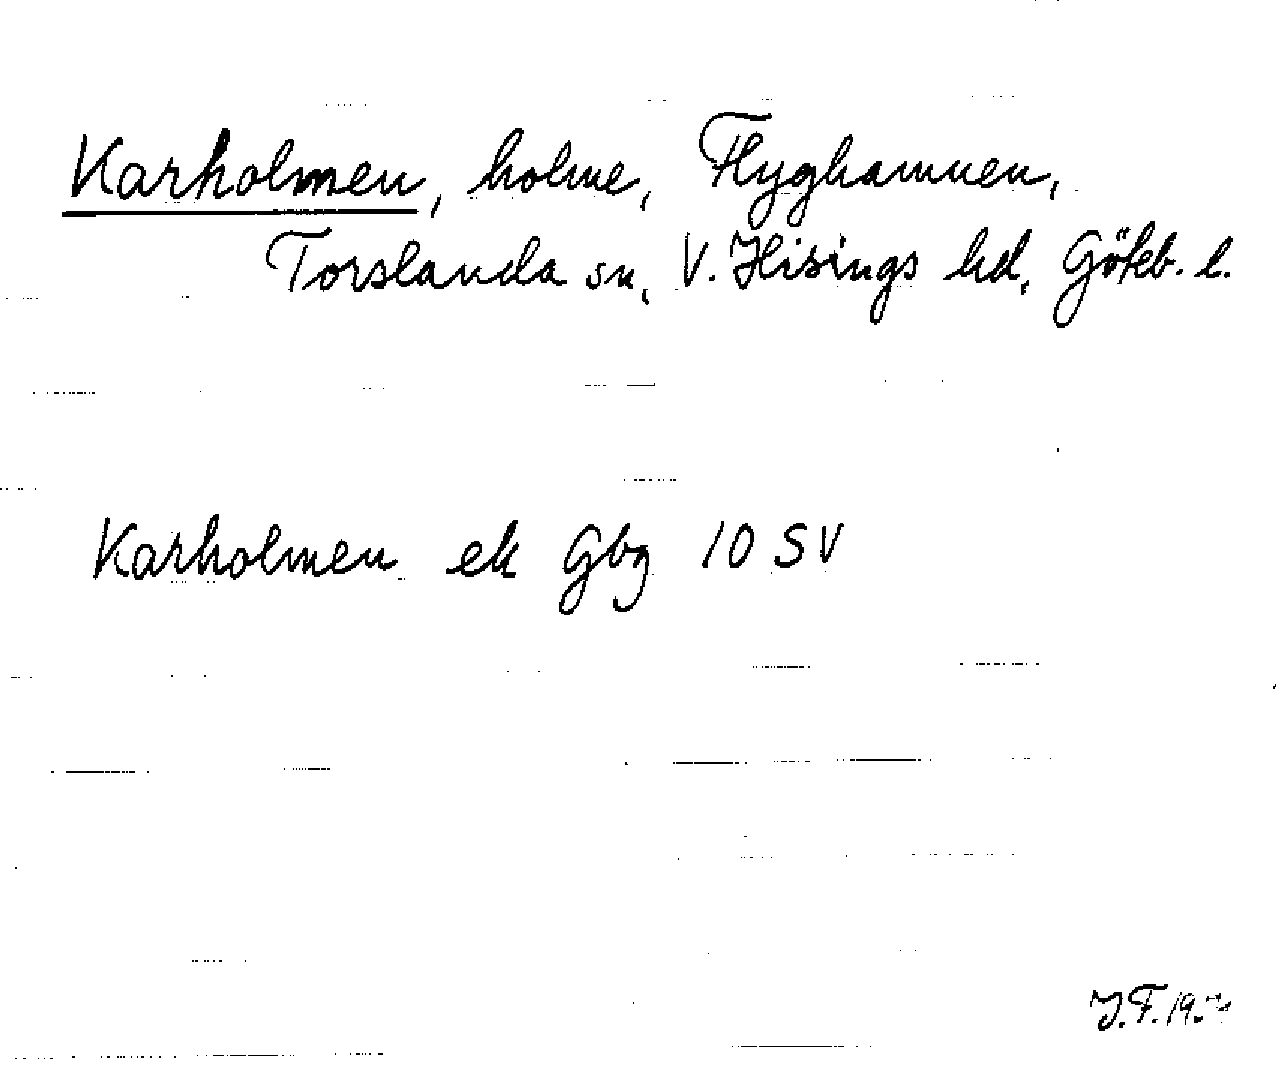 Karholmen, holme, Flyghamnen,
Torslanda sn, V. Hisings hd, Göteb. l.
Karholmen ek Gbg 10 SV
J.F.